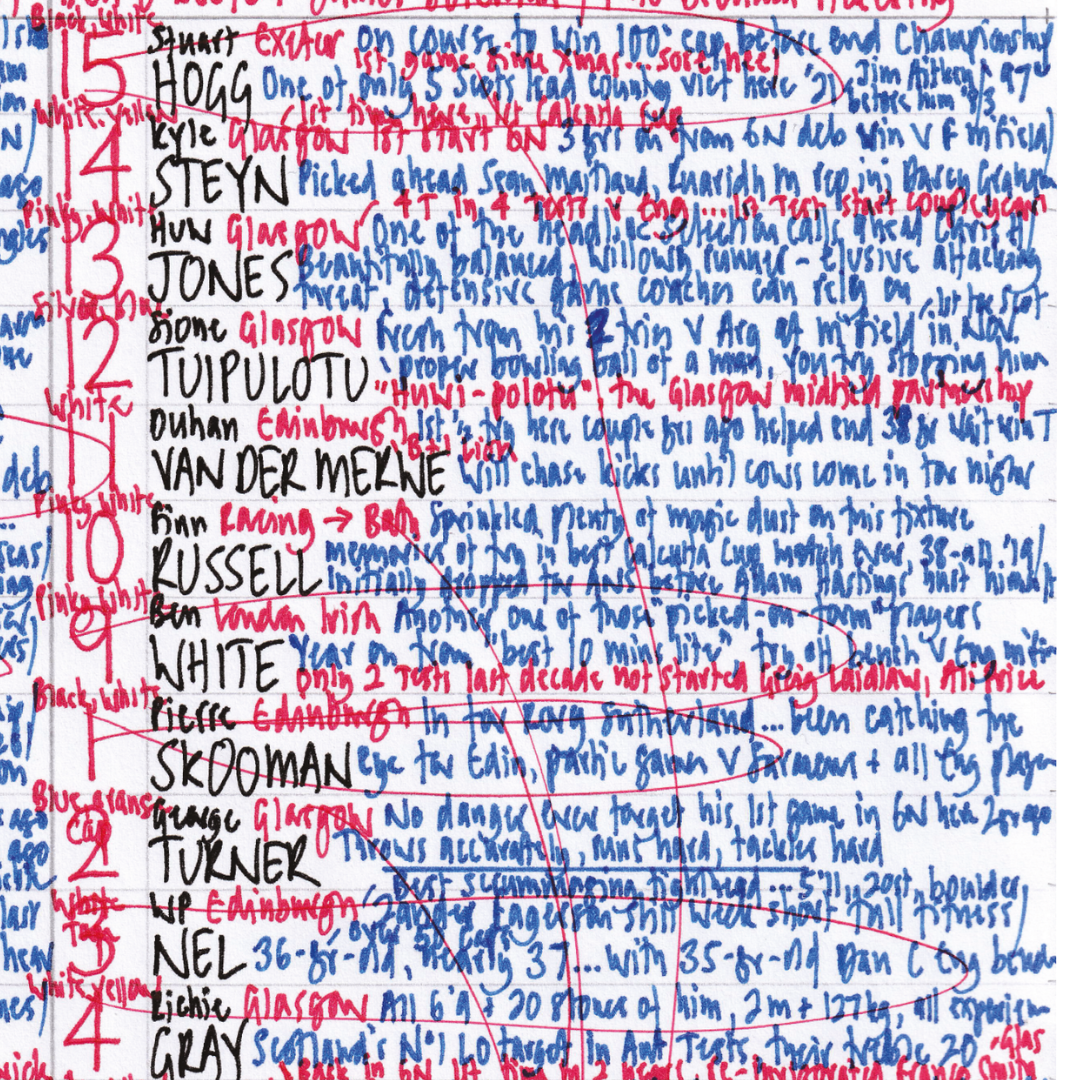 Black, White
15 Stuart Exeter on course to win 100th cap before end Championship
1st game since Xmas... sore heel
HOGG One of only 5 Scots lead country vict here '21 Jim Aitken
before him
White, Yellow
1st time here 1st Calcutta Cup
14 Kyle Glasgow 1st start 6N 3 yrs on from 6N deb win v F m'field
STEYN Picked ahead Sean Maitland, Ruaridh M rep inj Darcy Graham
Pinky, White
4T in 4 Tests v Eng... 1st Test start couple years
13 Huw Glasgow One of the headline selection calls ahead
JONES Beautifully balanced, willowy runner - elusive attacking
threat, defensive game coaches can rely on
Silver, Blue
12 Sione Glasgow Fresh from his 2 win v Arg at m'field in Nov
TUIPULOTU proper bowling ball of a man, you try stopping him
"Huwi-polotu" the Glasgow midfield partnership
White
11 Duhan Edinburgh 1st try here couple yrs ago helped end 38 yr wait win T
B+I Lion
VAN DER MERWE will chase kicks until cows come in for night
Pinky, White
10 Finn Racing → Bath Sprinkled plenty of magic dust on this fixture
memories of try in best Calcutta Cup match ever, 38-all '19
RUSSELL initially dropped for before Adam Hastings hurt himself
Pinky, White
9 Ben London Irish Another one of those "picked-on-form" players
WHITE Year on from "best 10 mins life" try off bench v Eng
Only 2 Tests last decade not started Greig Laidlaw, Ali Price
Black, White
1 Pierre Edinburgh In for Rory Sutherland... been catching the
SKOOMAN eye for Edin, partic games v Saracens + all Eng
Blue, orange
Cap
2 George Glasgow No danger ever forget his 1st game in 6N here 2yr ago
TURNER Throws accurately, runs hard, tackles hard
best scrummaging tighthead... 5'11, 20st, boulder
White
Tape
3 WP Edinburgh Zander Fagerson still week short full fitness
NEL 36-yr-old, nearly 37... with 35-yr-old Dan C Eng bench
White, Yellow
4 Richie Glasgow All 6'9 + 20 stones of him, 2m + 127kg, all experience
GRAY Scotland's No 1 LO target in Aut Tests, their 20
Glas
Back in 6N 1st time in 2 years